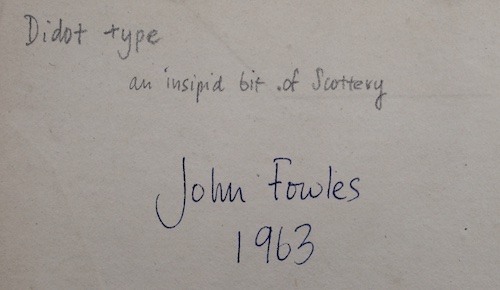 Didot type
an insipid bit of Scottery
John Fowles
1963